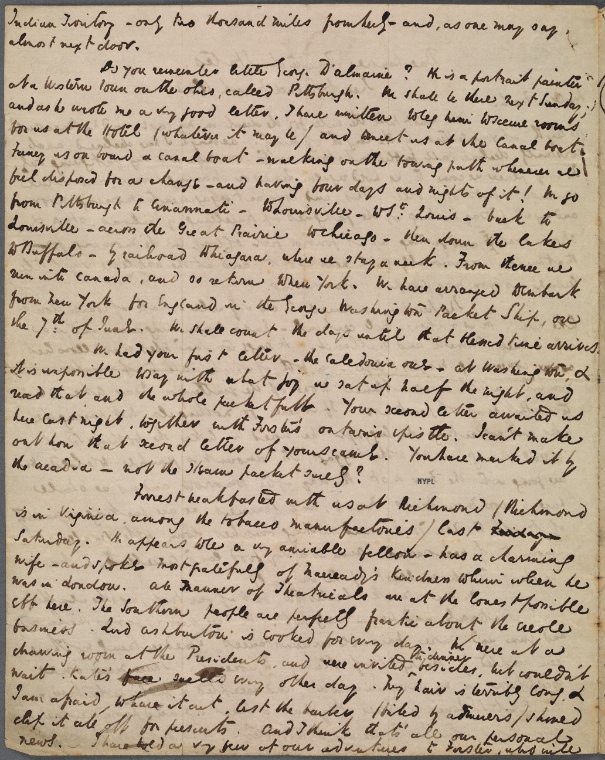 Indian Territory - only two thousand miles from here - and, as one may say,
almost next door.
Do you remember little George D'almaine? He is a portrait painter
at a Western town on the Ohio, called Pittsburgh. We shall be there next Sunday;
and as he wrote me a very good letter, I have written to beg him to secure rooms
for us at the Hotel (whatever it may be) and meet us at the Canal boat.
Fancy us on board a canal boat - walking on the towing path whenever we
feel disposed for a change - and having four days and nights of it! We go
from Pittsburgh to Cincinnati - to Louisville - to St. Louis - back to
Louisville - across the Great Prairie to Chicago - then down the Lakes
to Buffalo - by railroad to Niagara, where we stay a week. From thence we
run into Canada, and so return to New York. We have arranged to embark
from New York for England in the George Washington Packet Ship, on
the 7th. of June. We shall count the days until that blessed time arrives.
We had your first letter - the Caledonia one - at Washington, &
it is impossible to say with what joy we sat up half the night, and
read that and the whole packet full. Your second letter awaited us
here last night, together with Forster's epistle. I can't make
out how that second letter of yours came. You have marked it by
the acadia - not the steam packet surely?
NYPL
Forrest breakfasted with us at Richmond (Richmond
is in Virginia, among the tobacco manufactories) last
Saturday. He appears to be a very amiable fellow - has a charming
wife - and spoke most gratefully of Macready's kindness to him when he
was in London. All manner of Theatricals are at the lowest possible
ebb here. The Southern people are perfectly frantic about the creole
business. Lord ashburton is cooked for every day. We were at a
drawing room at the Presidents, and were invited to dinner besides, but couldn't
wait. Kate's face swells every other day. My hair is terribly long, &
I am afraid to have it cut, lest the barber (bribed by admirers) should
clip it all off for presents. And I think that's all our personal
news. I have told a very few of our adventures to Forster, who will